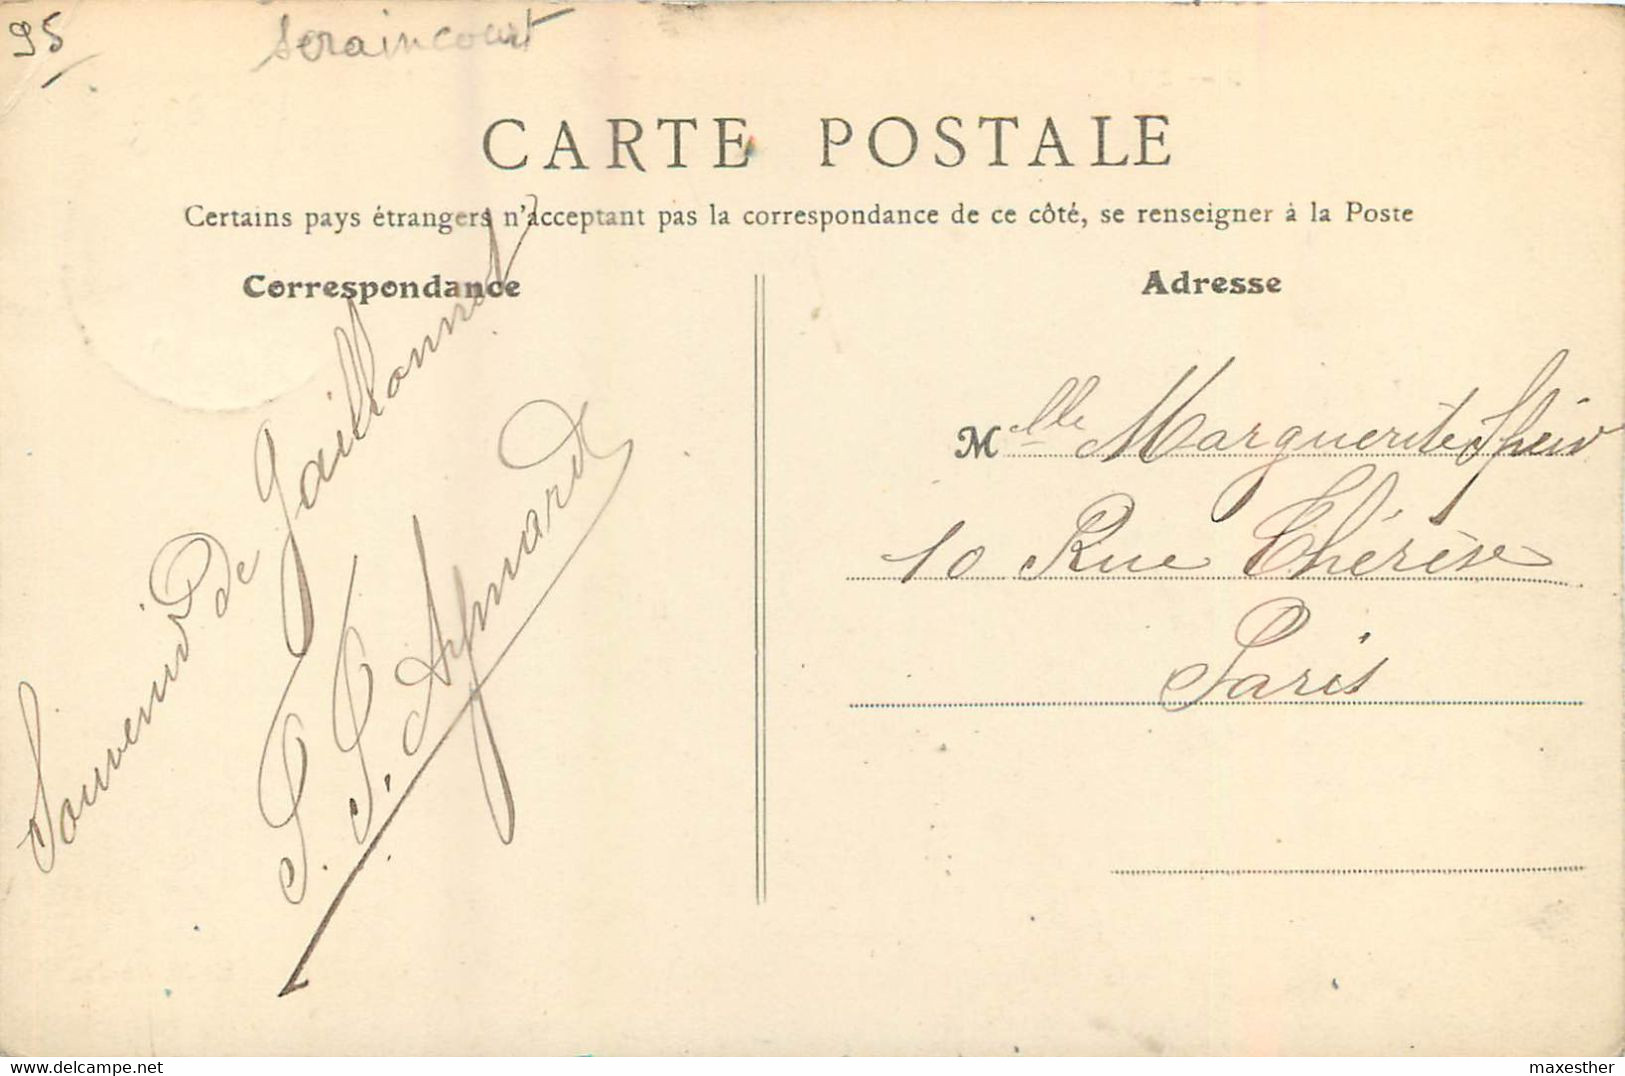 95
Seraincourt
CARTE POSTALE
Certains pays étrangers n'acceptant pas la correspondance de ce côté, se renseigner à la Poste
Correspondance
Souvenir de Gaillonnet
Adresse
Melle Marguerite
10 Rue Thérèse
Paris
delcampe.net
maxesther